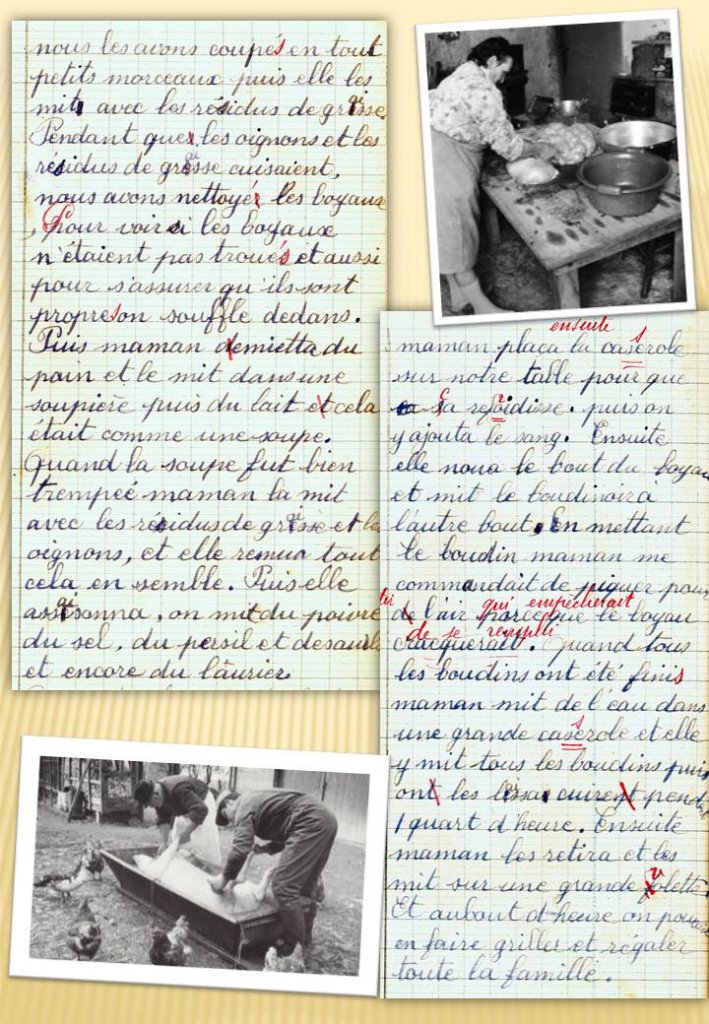 nous les avons coupés en tout
petits morceaux puis elle les
mit avec les résidus de graisse
Pendant que les oignons et les
résidus de graisse cuisaient,
nous avons nettoyé les boyaux
, Pour voir si les boyaux
n'étaient pas troués et aussi
pour s'assurer qu'ils sont
propres on souffle dedans.
Puis maman émietta du
pain et le mit dans une
soupière puis du lait et cela
était comme une soupe.
Quand la soupe fut bien
trempeé maman la mit
avec les résidus de graisse et les
oignons, et elle remua tout
cela en semble. Puis elle
assaisonna, on mit du poivre
du sel, du persil et des aulx
et encore du laurier.
ensuite
maman plaça la casserole
sur notre table pour que
ça refroidisse. puis on
y ajouta le sang. Ensuite
elle noua le bout du boyau
et mit le boudinoir à
l'autre bout. En mettant
le boudin maman me
commandait de piquer pour
qui empêcherait
de l'air parce que le boyau
de se remplir
craquerait. Quand tous
les boudins ont été finis
maman mit de l'eau dans
une grande casserole et elle
y mit tous les boudins puis
ont les laissa cuire pendant
1 quart d'heure. Ensuite
maman les retira et les
mit sur une grande volette
Et au bout d'heure on pouvait
en faire griller et régaler
toute la famille.